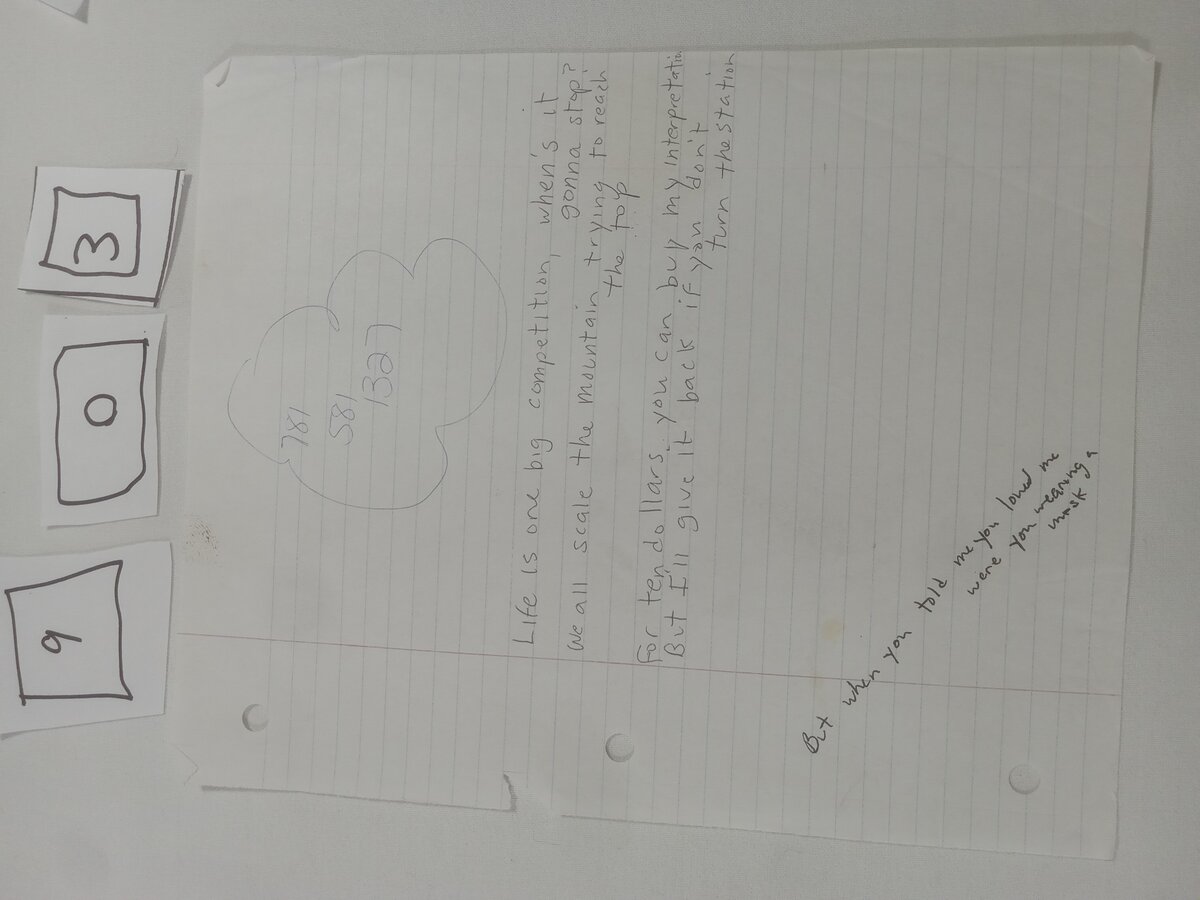 9 0 3
781
581
1327
Life is one big competition, when's it
gonna stop?
We all scale the mountain trying to reach
the top
For ten dollars, you can buy my interpretatio
But I'll give it back if you don't
turn the station
But when you told me you loved me
were you wearing a
mask